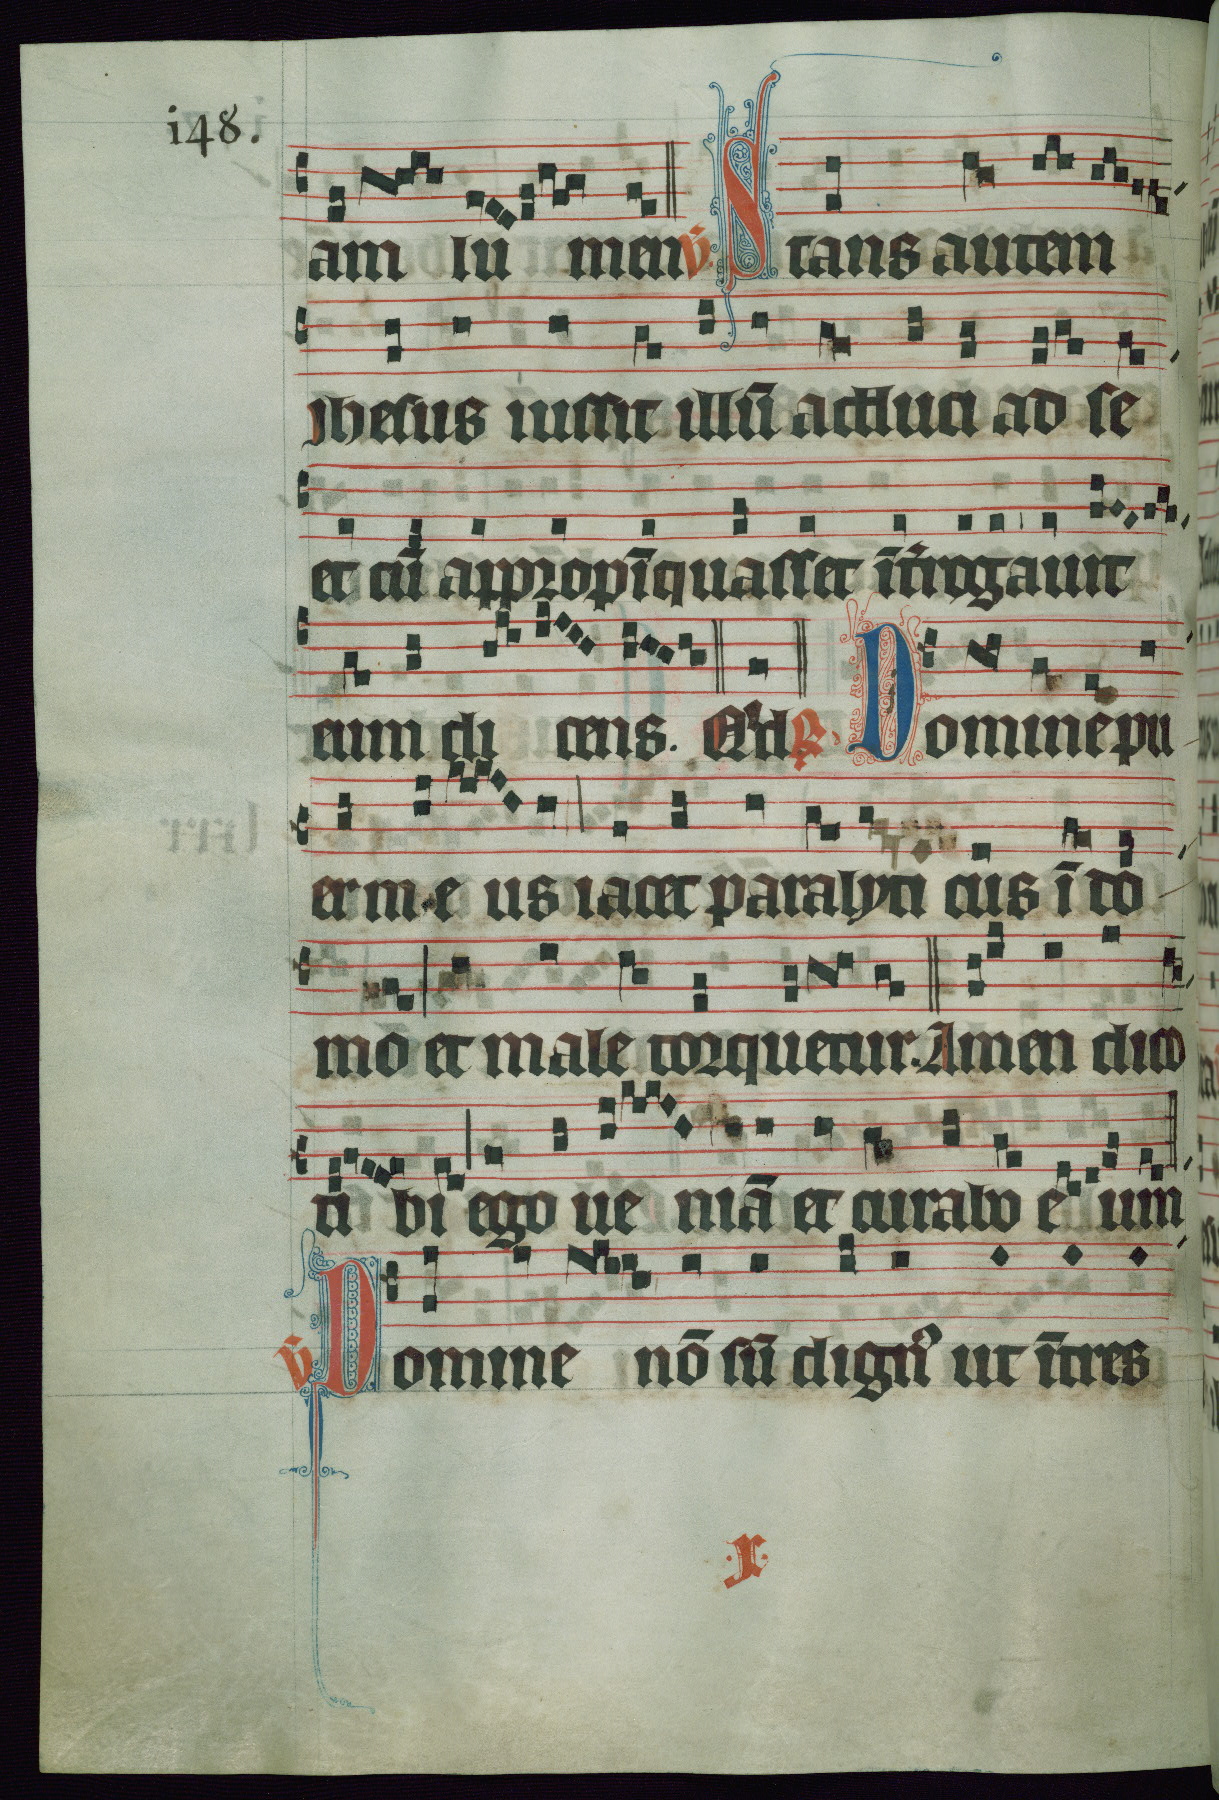 148.
am lū men ℣. Stans autem
Jhesus iussit illū adduci ad se
et cū appropīquasset īt̄rogauit
eum di cens. Qͥd ℟. Domine pu
er me us iacet paralyti cus ī do
mo et male torquetur. Amen dico
ti bi ego ue niā et curabo e um
℣ Domine nō sū dignꝰ ut ītres
.x.